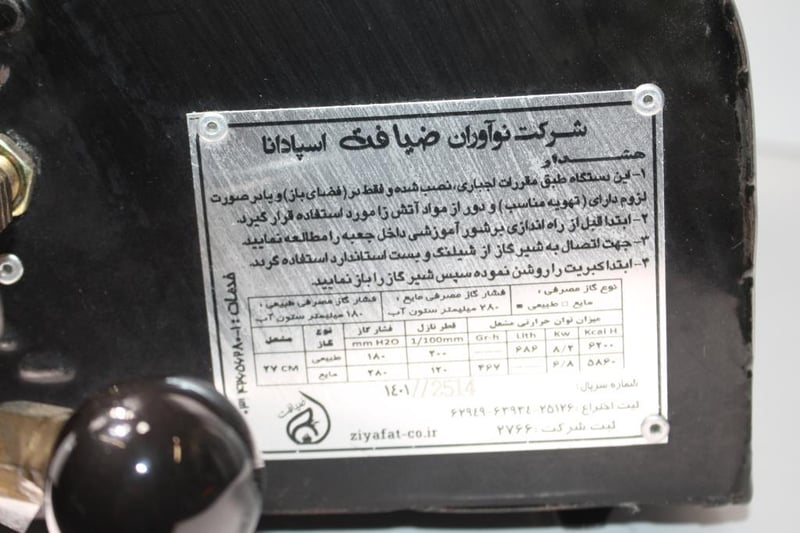 شرکت نوآوران ضیافت اسپادانا
هشدار
۱- این دستگاه طبق مقررات اجباری، نصب شده و فقط در (فضای باز) و یا در صورت
لزوم دارای (تهویه مناسب) و دور از مواد آتش زا مورد استفاده قرار گیرد.
۲- ابتدا قبل از راه اندازی برشور آموزشی داخل جعبه را مطالعه نمایید.
۳- جهت اتصال به شیر گاز از شیلنگ و بست استاندارد استفاده گردد.
۴- ابتدا کبریت را روشن نموده سپس شیر گاز را باز نمایید.
نوع گاز مصرفی: فشار گاز مصرفی مایع: فشار گاز مصرفی طبیعی:
مایع □ طبیعی ■ ۲۸۰ میلیمتر ستون آب ۱۸۰ میلیمتر ستون آب
مشعل نوع گاز فشار گاز mm H2O قطر نازل 1/100mm میزان توان حرارتی مشعل
Gr-h Lith Kw Kcal H
۲۷ CM طبیعی ۱۸۰ ۲۰۰ ---- ۶۸۶ ۸/۲ ۶۲۰۰
مایع ۲۸۰ ۱۲۰ ۴۶۷ ---- ۶/۸ ۵۸۶۰
شماره سریال: ۱۴۰۱//2514
ثبت اختراع: ۲۵۱۲۶-۶۳۹۳۴-۶۲۹۴۹
ثبت شرکت: ۲۷۶۶
ضیافت
ziyafat-co.ir
خدمات: